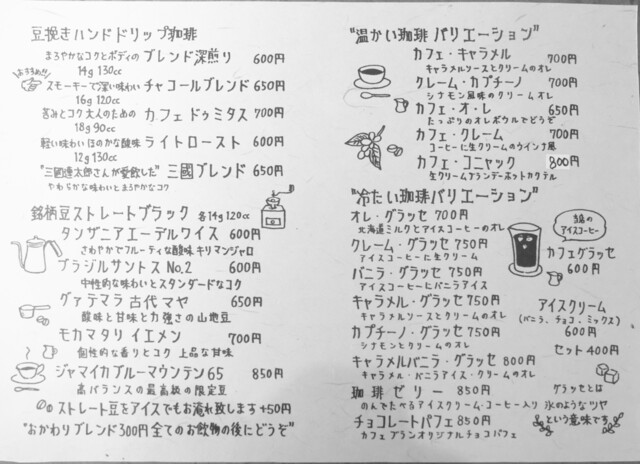 豆挽きハンドドリップ珈琲
まろやかなコクとボディのブレンド深煎り 600円
14g 130cc
おすすめ!!
スモーキーで深い味わい チャコールブレンド 650円
16g 120cc
苦みとコク大人のための カフェドゥミタス 700円
18g 90cc
軽い味わいほのかな酸味 ライトロースト 600円
12g 130cc
"三國連太郎さんが愛飲した" 三國ブレンド 650円
やわらかな味わいとまろやかなコク
銘柄豆ストレートブラック 各14g120cc
タンザニアエーデルワイス 600円
さわやかでフルーティな酸味 キリマンジャロ
ブラジルサントス No.2 600円
中性的な味わいとスタンダードなコク
グァテマラ 古代マヤ 650円
酸味と甘味と力強さの山地豆
モカマタリ イエメン 700円
個性的な香りとコク 上品な甘味
ジャマイカブルーマウンテン65 850円
高バランスの最高級の限定豆
ストレート豆をアイスでもお淹れ致します +50円
"おかわりブレンド300円全てのお飲物の後にどうぞ"
"温かい珈琲 バリエーション"
カフェ・キャラメル 700円
キャラメルソースとクリームのオレ
クレーム・カプチーノ 700円
シナモン風味のクリームオレ
カフェ・オ・レ 650円
たっぷりのオレボウルでどうぞ
カフェ・クレーム 700円
コーヒーに生クリームのウインナ風
カフェ・コニャック 800円
生クリームブランデーホットカクテル
"冷たい珈琲バリエーション"
オレ・グラッセ 700円
北海道ミルクとアイスコーヒーのオレ
クレーム・グラッセ 750円
アイスコーヒーに生クリーム
バニラ・グラッセ 750円
アイスコーヒーにバニラアイス
キャラメル・グラッセ 750円
キャラメルソースとクリームのオレ
カプチーノ・グラッセ 750円
シナモンとクリームのオレ
キャラメルバニラ・グラッセ 800円
キャラメル・バニラアイス・クリームのオレ
珈琲ゼリー 850円
のんでたべるアイスクリーム・コーヒー入り
チョコレートパフェ 850円
カフェブランオリジナルチョコパフェ
アイスコーヒー
カフェグラッセ
600円
アイスクリーム
(バニラ、チョコ、ミックス)
600円
セット 400円
グラッセとは
氷のようなツヤ
という意味です